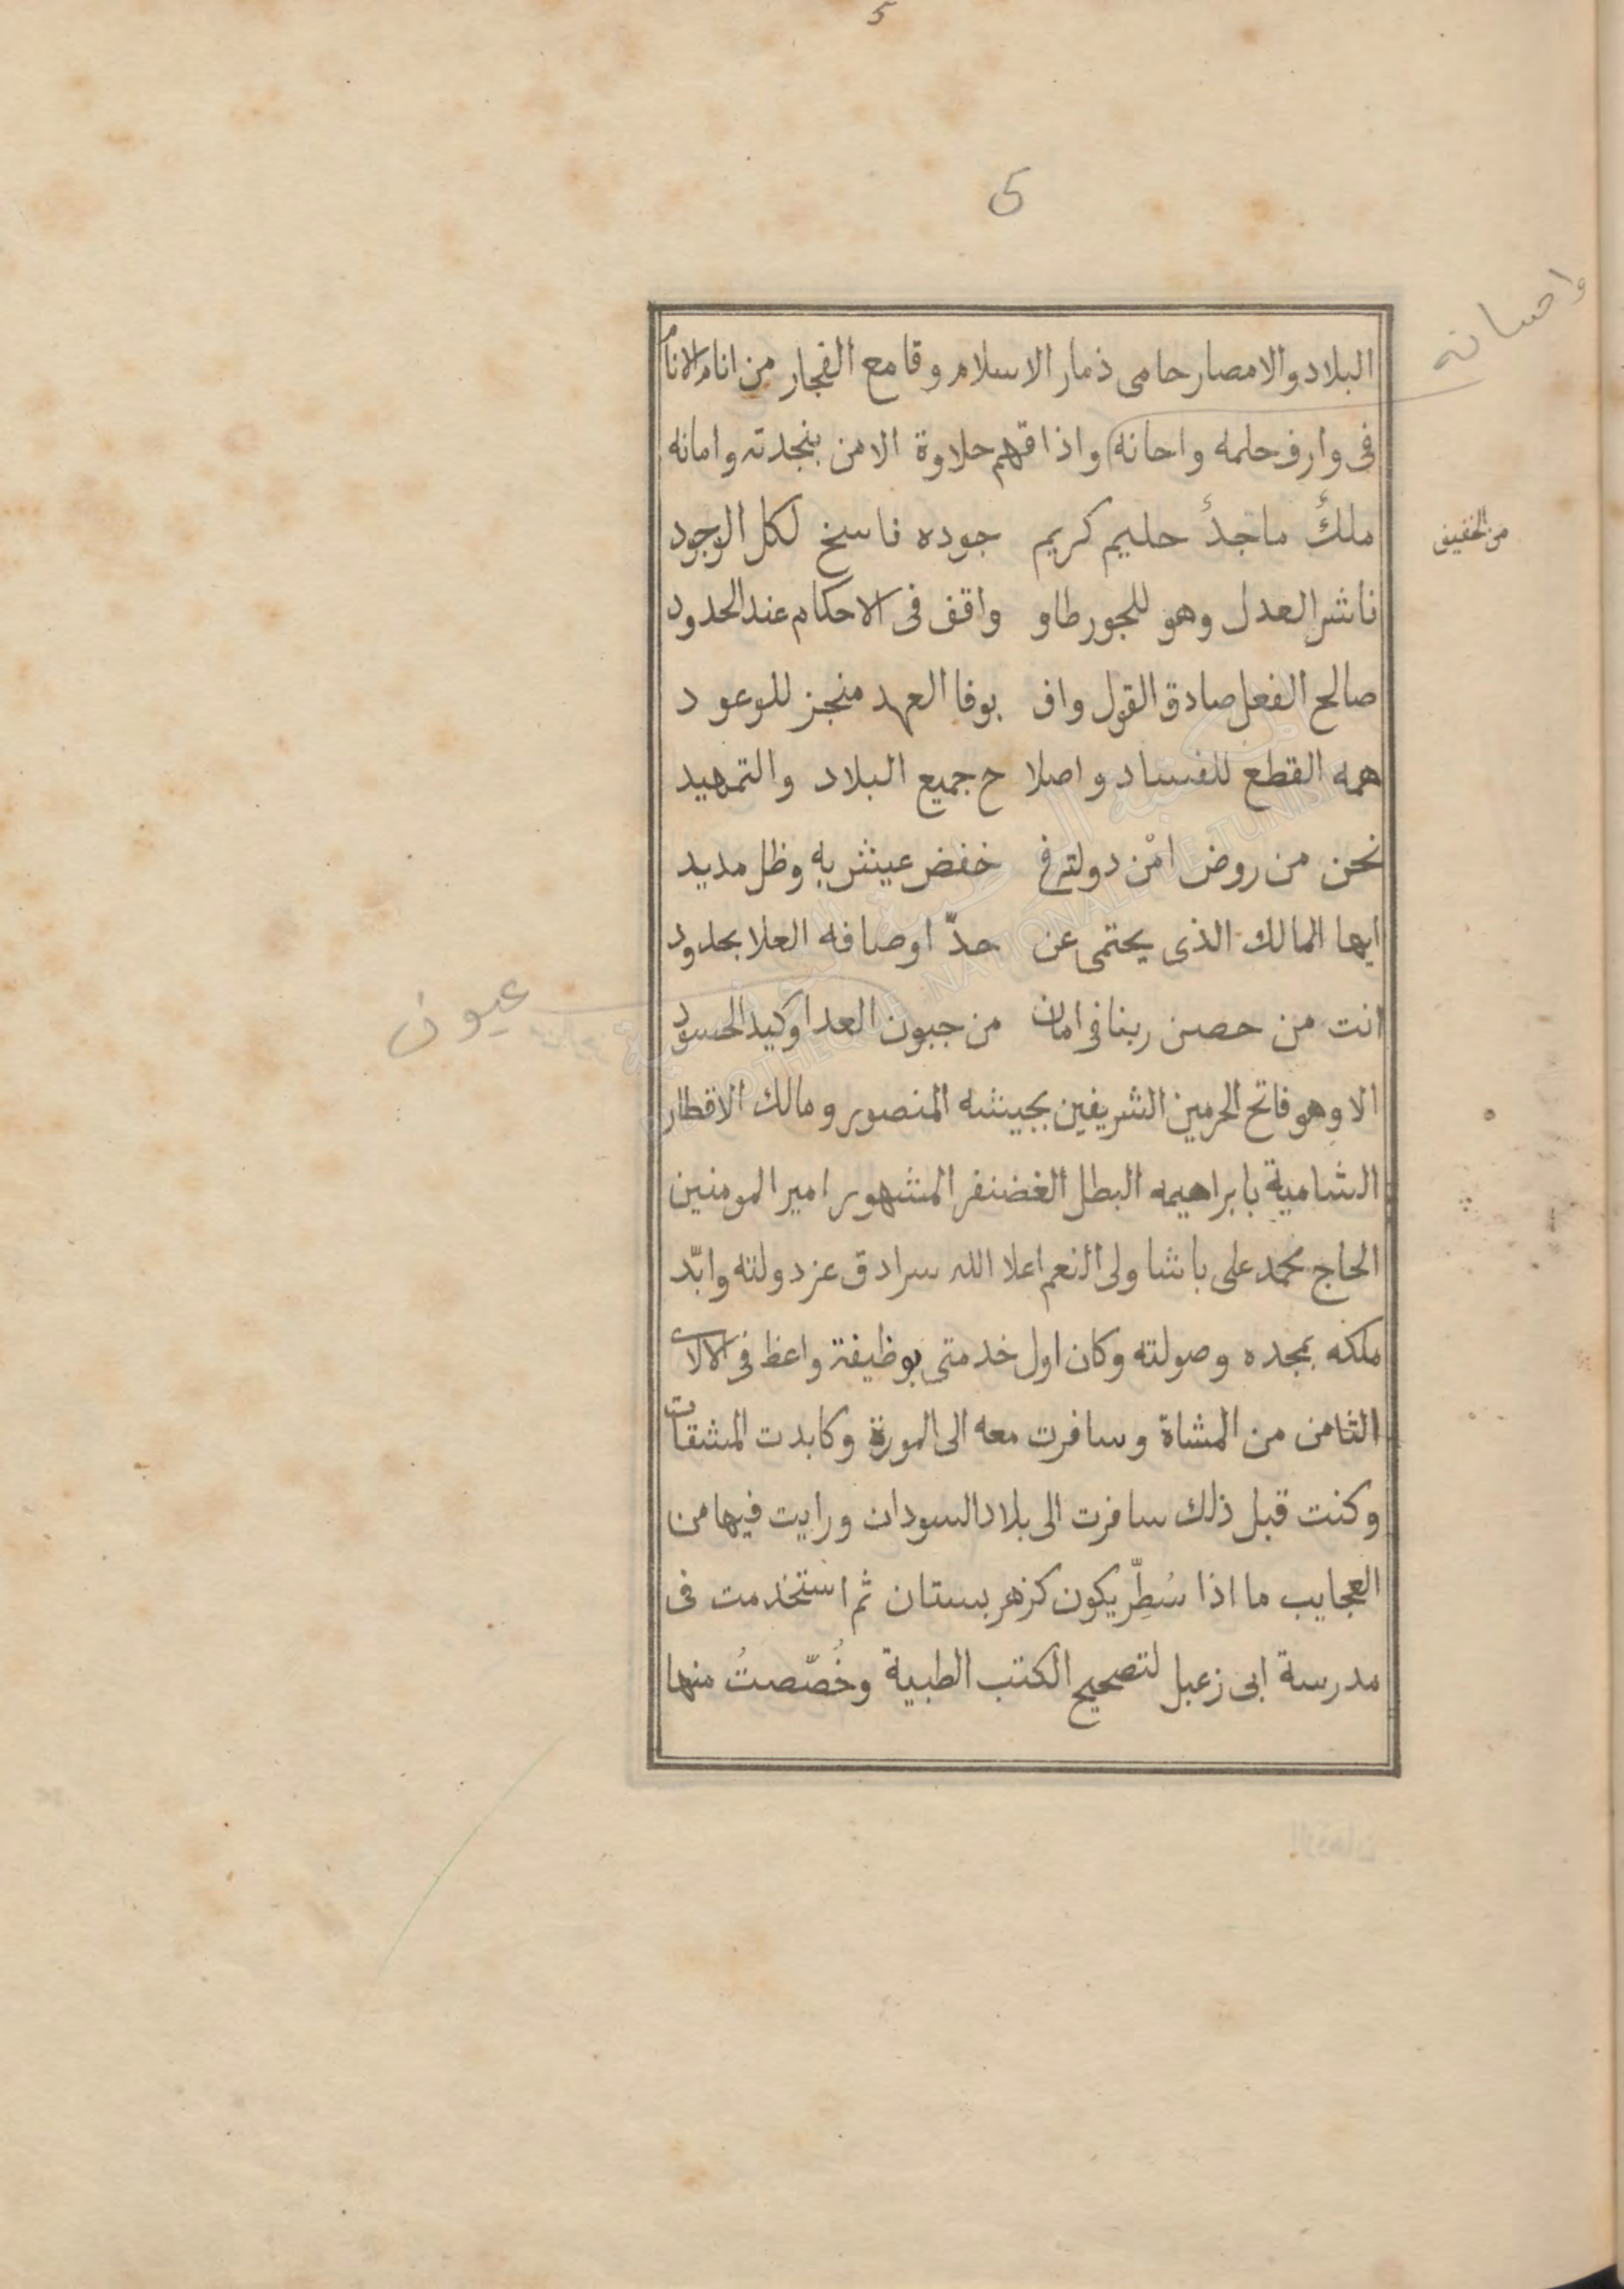 5
5
واحسانه
البلاد والامصار حامى ذمار الاسلام وقامع الفجار من انام الانام
فى وارف حلمه واحانه واذاقهم حلاوة الامن بنجدته وامانه
من الخفيف
ملكٌ ماجدٌ حليم كريم جوده ناسخ لكل الوجود
ناشر العدل وهو للجور طاو واقف فى الاحكام عند الحدود
صالح الفعل صادق القول واف بوفا العهد منجز للوعود
همه القطع للفساد واصلا ح جميع البلاد والتمهيد
نحن من روض امْن دولته فى خفض عيش به وظل مديد
ايها المالك الذى يحتمى عن حدّ اوصافه العلا بحدود
انت من حصن ربنا فى امان من جبون العدا وكيد الحسود
عيون
الا وهو فاتح الحرمين الشريفين بجيشه المنصور ومالك الاقطار
الشامية بابراهيمه البطل الغضنفر المشهور امير المومنين
الحاج محمد على باشا ولى النعم اعلا الله سرادق عز دولته وابّد
ملكه بمجده وصولته وكان اول خدمتى بوظيفة واعظ فى الالاى
الثامن من المشاة وسافرت معه الى المورة وكابدت المشقات
وكنت قبل ذلك سافرت الى بلاد السودان ورايت فيها من
العجايب ما اذا سُطِّر يكون كزهر بستان ثم استخدمت فى
مدرسة ابى زعبل لتصحيح الكتب الطبية وخُصّصتُ منها